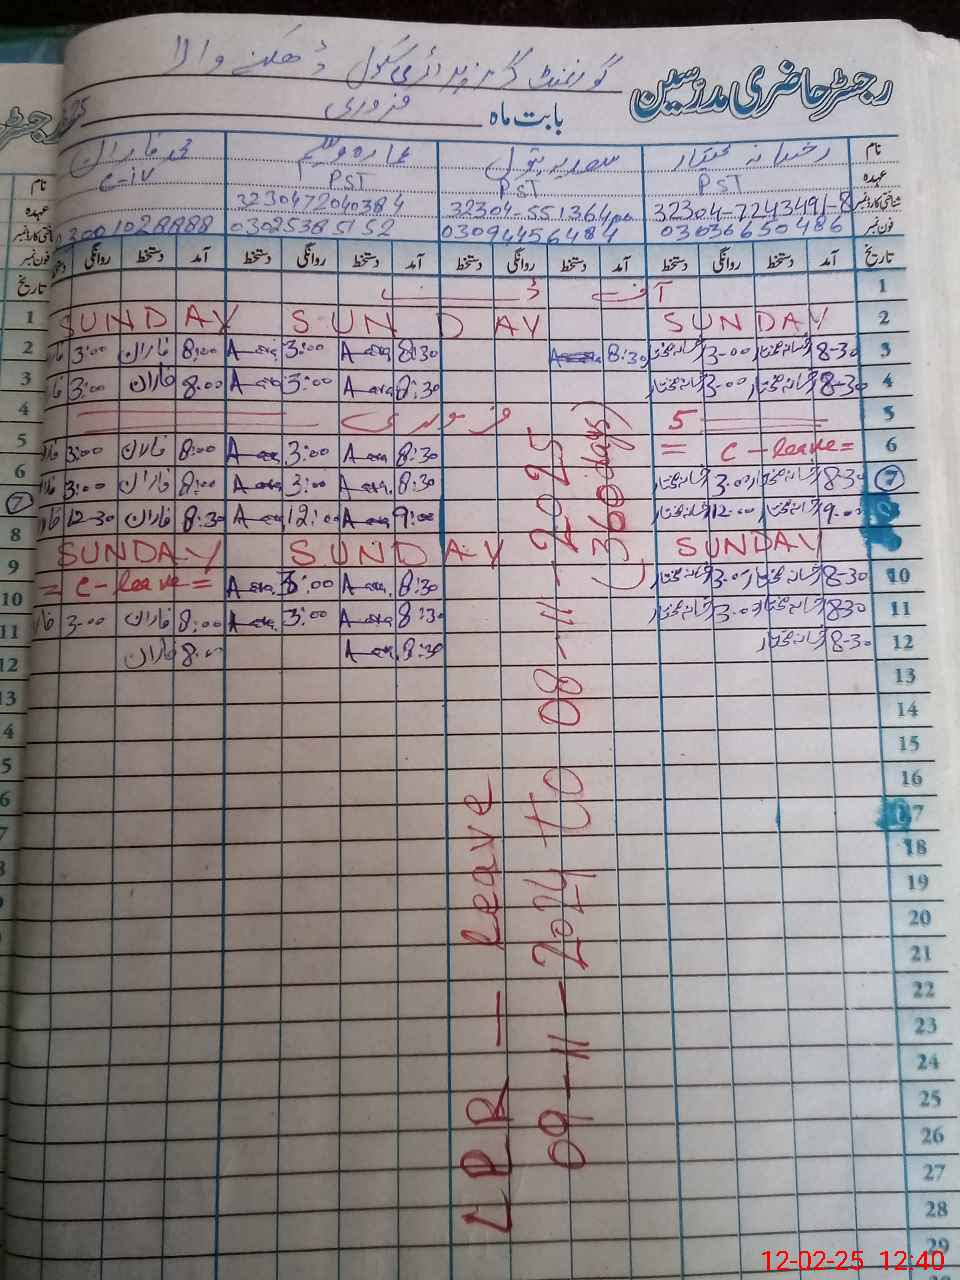 رجسٹر حاضری مدرسین
گورنمنٹ گرلز پرائمری سکول ڈھکنے والا
بابت ماہ فروری 25
نام رخسانہ مختار سعدیہ بتول عمارہ وسیم محمد فاران
عہدہ PST PST PST C-iv
شناختی کارڈ نمبر 32304-7243491-8 32304-551364 3230472040384
فون نمبر 03036650486 03094456484 03025385152 03001028888
تاریخ آمد دستخط روانگی دستخط آمد دستخط روانگی دستخط آمد دستخط روانگی دستخط آمد دستخط روانگی دستخط
1
2 SUNDAY SUNDAY SUNDAY
3 8-30 3-00 8:30 8:30 3:00 8:00 فاران 3:00
4 8-30 3-00 8:30 3:00 8:00 فاران 3:00
5 5 فروری
6 = C-leave = 8:30 3:00 8:00 فاران 3:00
7 8-30 3-00 8:30 3:00 8:00 فاران 3:00
8 9-00 12-00 9:00 12:00 8:30 فاران 12-30
9 SUNDAY SUNDAY SUNDAY
10 8-30 3-00 8:30 3:00 = C-leave =
11 8-30 3-00 8:30 3:00 8:00 فاران 3-00
12 8-30 8:30 8:00 فاران
13
14
15
16
17
18
19
20
21
22
23
24
25
26
27
28
29
LPR - leave
09-11-2024 to 08-11-2025
(360 days)
12-02-25 12:40